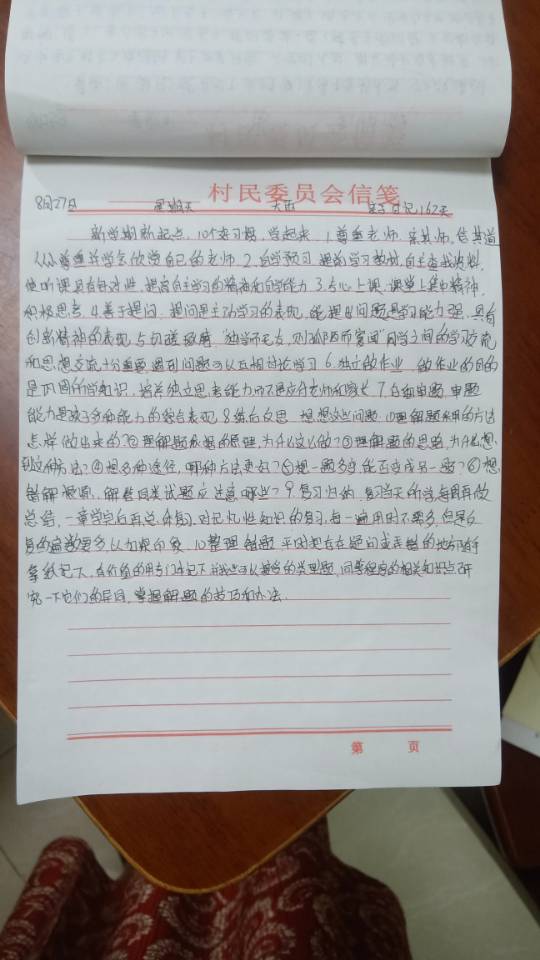 村民委员会信笺
8月27日 星期天 大雨 亲子日记162天
新学期新起点,10个好习惯,学起来 1.尊重老师 亲其师,信其道
从尊重并学会欣赏自己的老师 2.自学预习 提前学习教材,自主查找资料,
使听课具有针对性,提高自主学习的精神和自学能力 3.专心上课,课堂上集中精神,
积极思考 4.善于提问,提问是主动学习的表现,能提出问题是学习能力强,具有
创新精神的表现 5.切磋琢磨 "独学无友,则孤陋而寡闻"同学之间的学习交流
和思想交流十分重要 遇到问题可以互相讨论学习 6.独立做作业 做作业的目的
是巩固所学知识,培养独立思考能力而不是应付老师和家长 7.仔细审题,审题
能力是孩子多种能力的综合表现 8.练后反思 想想这些问题,①理解题采用的方法
怎样做出来的?②理解题依据的原理,为什么这么做?③理解题的思路,为什么想
到这种方法?④想多种途径,哪种方法更好?⑤想一题多变,能否变成另一题?⑥想
错解根源,解答同类试题应注意哪些?9.复习归纳,复习当天所学,每周再做
总结,一章学完后再总体复习 对记忆性知识的复习,每一遍用时不要多,但是反
复的遍数要多,以加强印象,10.整理错题,平时把存在疑问或弄错的地方随手
拿纸记下,有价值的用专门本记下 并找出可以接受的类型题,同等程度的相关知识点研
究一下它们的异同,掌握解题的技巧和办法
第 页